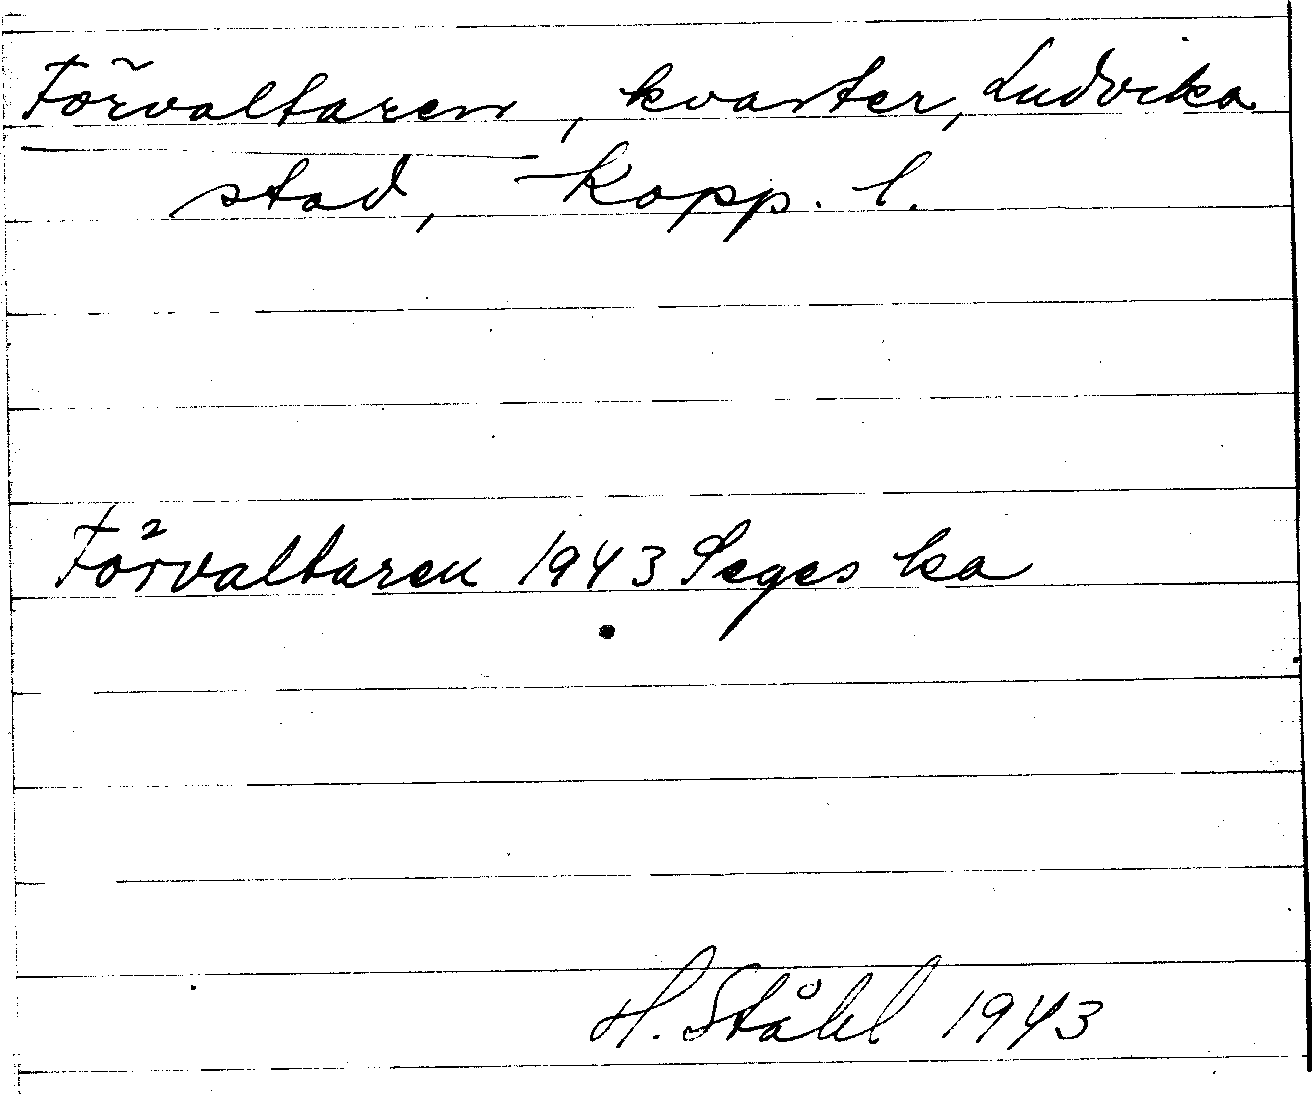 Förvaltaren, kvarter, Ludvika
stad, Kopp. l.
Förvaltaren 1943 Seges ka
H. Ståhl 1943